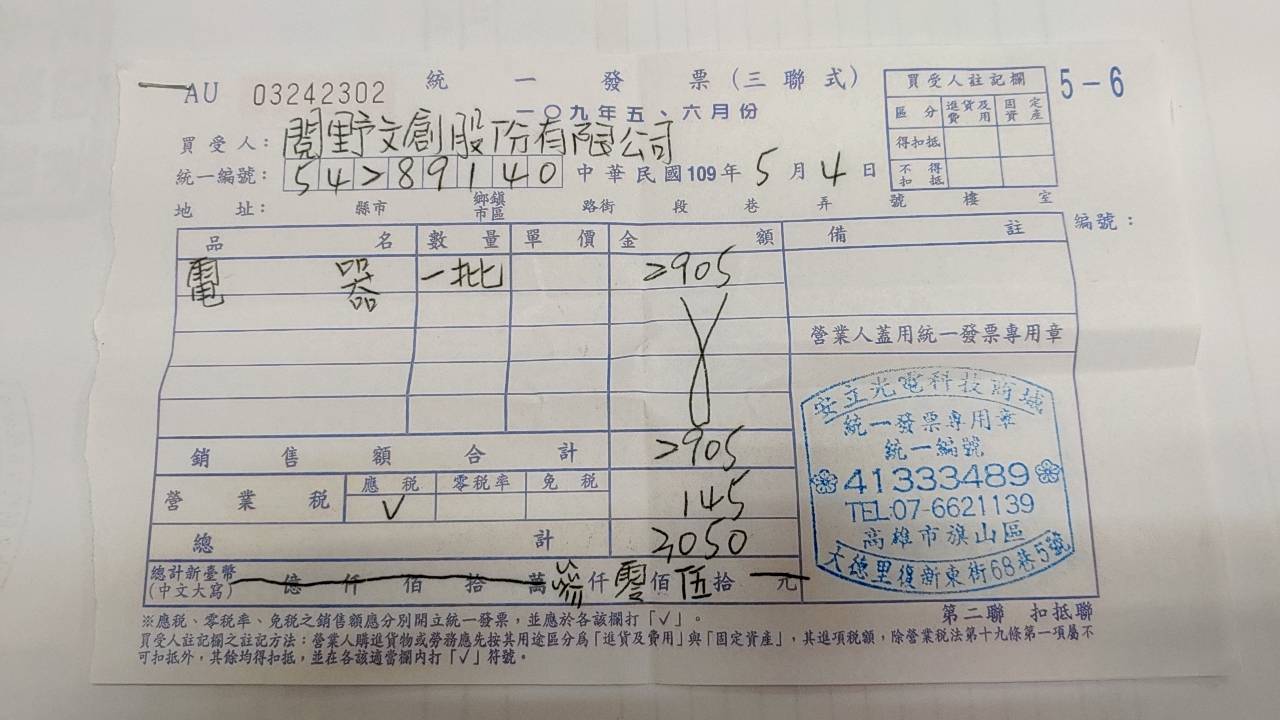 AU 03242302 統一發票(三聯式)
一〇九年五、六月份
5-6
買受人註記欄
區分 進貨及費用 固定資產
得扣抵
不得扣抵
買受人: 閱野文創股份有限公司
統一編號: 54289140 中華民國109年5月4日
地址: 縣市 鄉鎮市區 路街 段 巷 弄 號 樓 室
品名 數量 單價 金額 備註 編號:
電器 一批 2905
營業人蓋用統一發票專用章
銷售額合計 2905
營業稅 應稅 零稅率 免稅 145
V
總計 3050
總計新臺幣 億仟佰拾萬參仟零佰伍拾元
(中文大寫)
安立光電科技商城
統一發票專用章
統一編號
41333489
TEL:07-6621139
高雄市旗山區
大德里復新東街68巷5號
第二聯 扣抵聯
※應稅、零稅率、免稅之銷售額應分別開立統一發票,並應於各該欄打「✓」。
買受人註記欄之註記方法:營業人購進貨物或勞務應先按其用途區分為「進貨及費用」與「固定資產」,其進項稅額,除營業稅法第十九條第一項屬不
可扣抵外,其餘均得扣抵,並在各該適當欄內打「✓」符號。